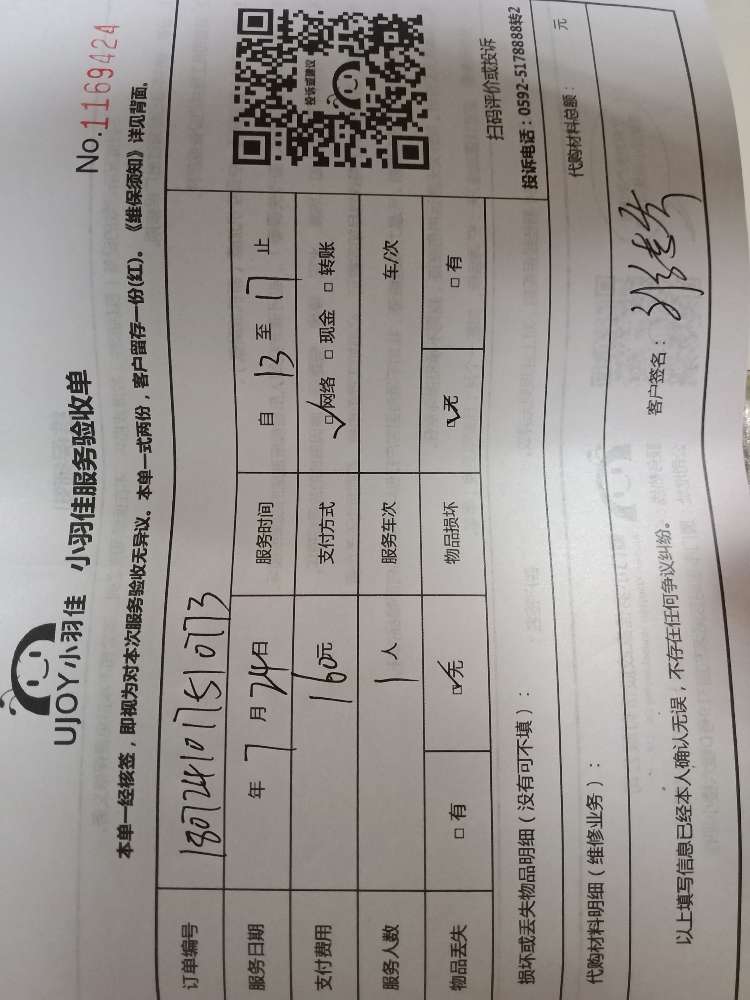 UJOY小羽佳 小羽佳服务验收单
No.1169424
本单一经核签，即视为对本次服务验收无异议。本单一式两份，客户留存一份(红)。《维保须知》详见背面。
订单编号 1807241017510773
服务日期 年 7 月 24 日 服务时间 自 13 至 17 止
支付费用 160元 支付方式 ☑网络 □现金 □转账
服务人数 1 人 服务车次 车/次
物品丢失 □有 ☑无 物品损坏 ☑无 □有
投诉或建议
扫码评价或投诉
投诉电话：0592-5178888转2
损坏或丢失物品明细（没有可不填）：
代购材料明细（维修业务）： 代购材料总额： 元
以上填写信息已经本人确认无误，不存在任何争议纠纷。 客户签名：